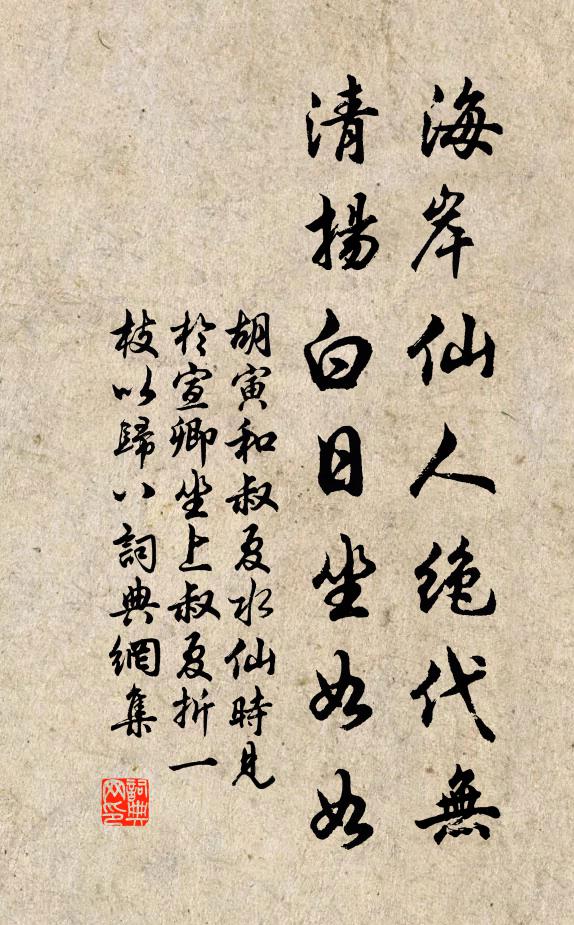 海岸仙人絶代無
清揚白日坐如如
胡寅和叔夏水仙時見
於宣卿坐上叔夏折一
枝以歸八詞典網集
詞典网印